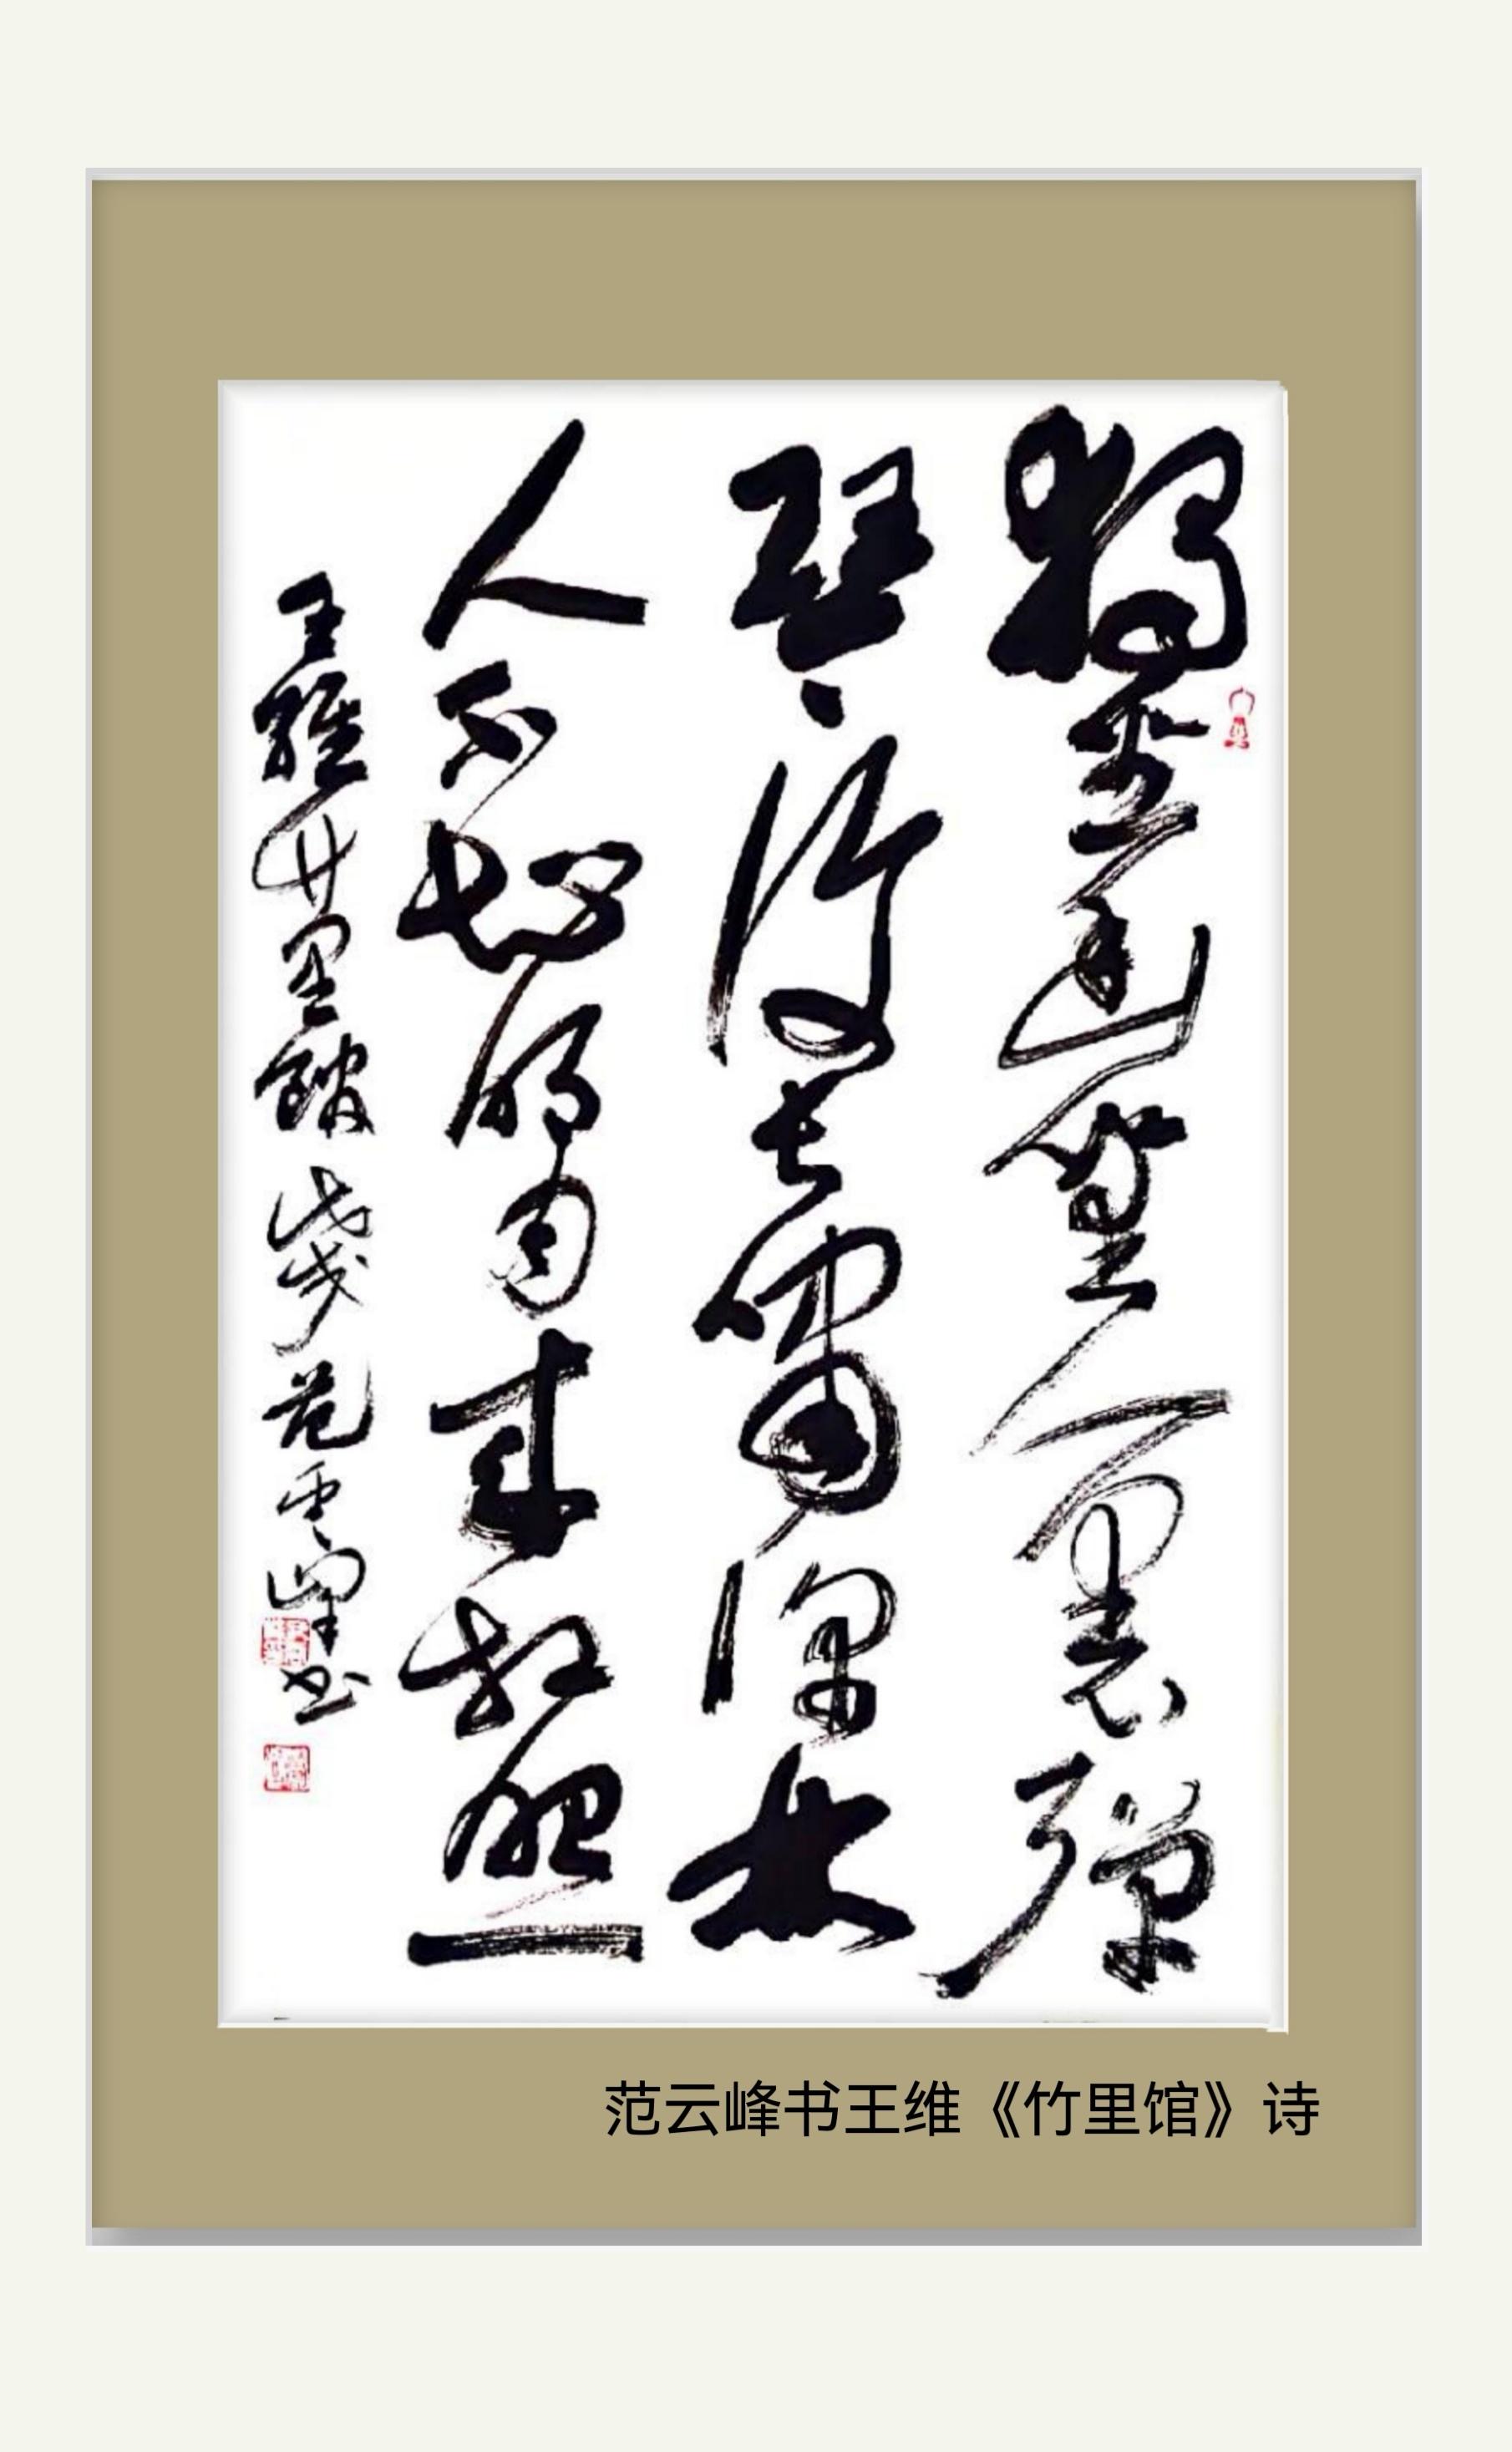 獨坐幽篁裏彈
琴復長嘯深林
人不知明月來相照
王維竹里館戊戌范雲峯書
范云峰书王维《竹里馆》诗